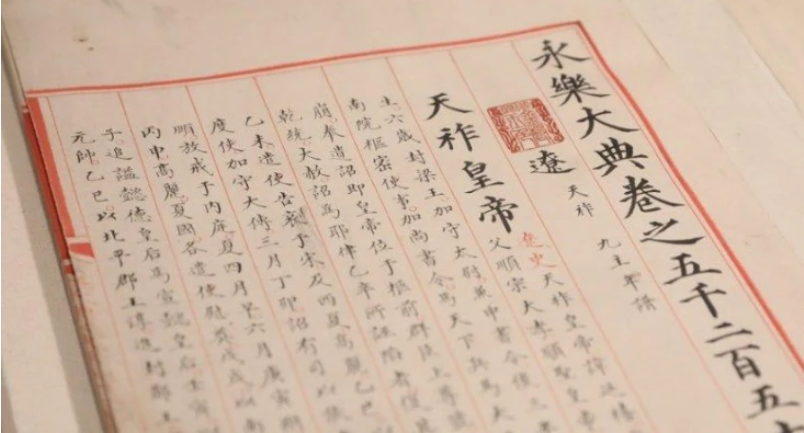 永樂大典卷之五千二百五十
遼 天祚 九主年譜
天祚皇帝 遼史 天祚皇帝諱延禧
父順宗大孝順聖皇帝
上六歲封梁王加守太尉兼中書令後三年
南院樞密使事加尚書令爲天下兵馬大
崩奉遺詔即皇帝位于柩前群臣上尊號
乾統大赦詔爲耶律乙辛所誣陷者復
乙未遣使告哀于宋及西夏高麗乙巳
度使加守太傅三月丁卯詔有司以張
明放戒于內庭夏四月旱六月庚寅朔
丙申高麗夏國各遣使慰奠戊戌以南
子追謚懿德皇后爲宣懿皇后壬寅
元帥乙巳以北平郡王淳進封鄭王